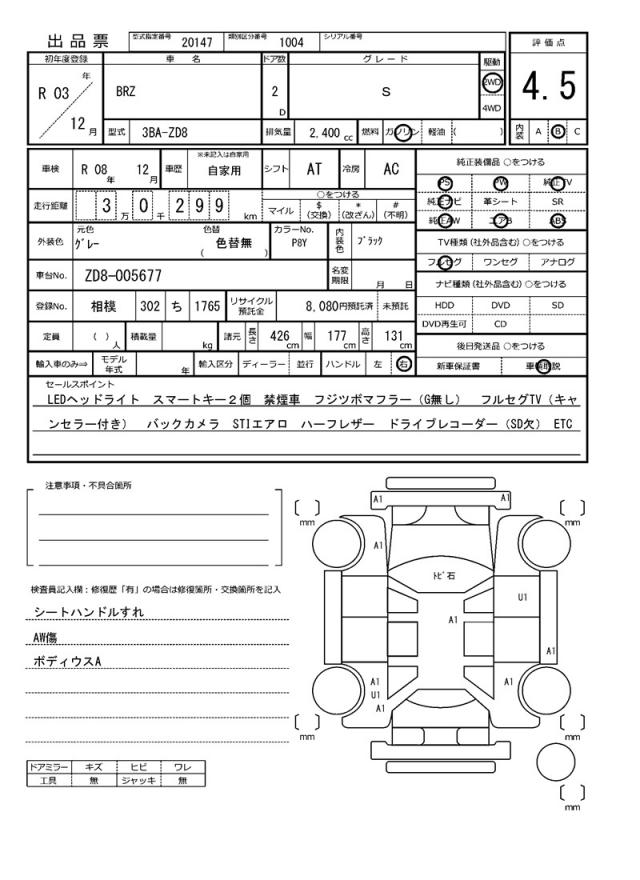 出品票 型式指定番号 20147 類別区分番号 1004 シリアル番号
初年度登録 車 名 ドア数 グレード 駆動 評価点
R 03 年 12 月 BRZ 2 D S 2WD 4WD 4.5
型式 3BA-ZD8 排気量 2,400 cc 燃料 ガソリン 軽油 ( ) 内装 A B C
車検 R 08 年 12 月 車歴 ※未記入は自家用 自家用 シフト AT 冷房 AC
純正装備品 ○をつける
PS PW 純正TV
純正ナビ 革シート SR
純正AW エアB ABS
走行距離 3 万 0 千 2 9 9 km
○をつける
マイル $ (交換) * (改ざん) # (不明)
TV種類 (社外品含む) ○をつける
フルセグ ワンセグ アナログ
外装色 元色 グレー 色替 ( 色替無 ) カラーNo. P8Y 内装色 ブラック
車台No. ZD8-005677 名変期限 月 日
ナビ種類 (社外品含む) ○をつける
HDD DVD SD
DVD再生可 CD
登録No. 相模 302 ち 1765 リサイクル預託金 8,080円預託済 未預託
定員 ( ) 人 積載量 kg 諸元 長さ 426 cm 幅 177 cm 高さ 131 cm
後日発送品 ○をつける
新車保証書 車輌取説
輸入車のみ⇒ モデル年式 年 輸入区分 ディーラー 並行 ハンドル 左 右
セールスポイント
LEDヘッドライト スマートキー2個 禁煙車 フジツボマフラー(G無し) フルセグTV(キャ
ンセラー付き) バックカメラ STIエアロ ハーフレザー ドライブレコーダー(SD欠) ETC
注意事項・不具合箇所
検査員記入欄：修復歴「有」の場合は修復箇所・交換箇所を記入
シートハンドルすれ
AW傷
ボディウスA
ドアミラー キズ ヒビ ワレ
工具 無 ジャッキ 無
A1 A1
mm mm
A1
トビ石
U1
A1
A1
A1 A1
U1
A1
mm mm
mm